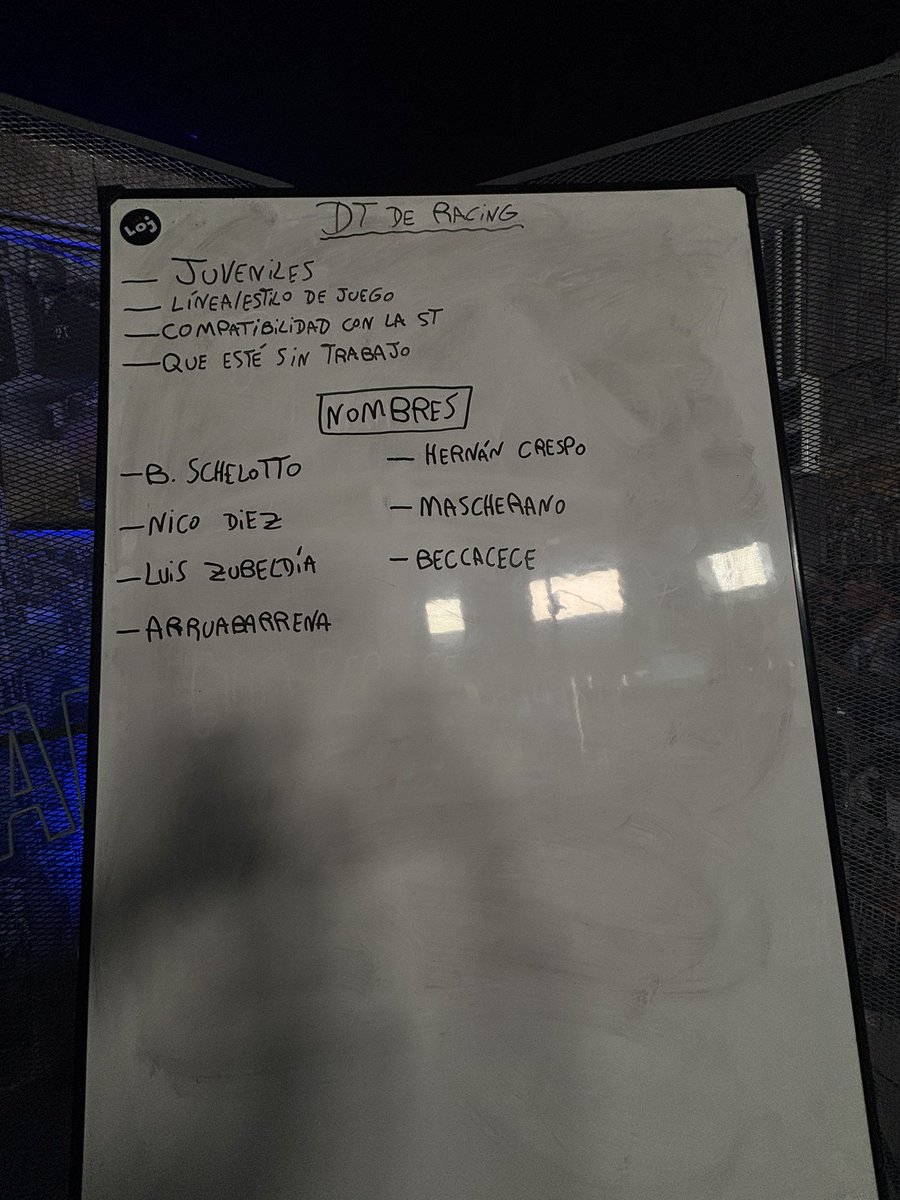 Loj
DT DE RACING
— JUVENILES
— LÍNEA/ESTILO DE JUEGO
— COMPATIBILIDAD CON LA ST
— QUE ESTÉ SIN TRABAJO
NOMBRES
— B. SCHELOTTO
— NICO DIEZ
— LUIS ZUBELDÍA
— ARRUABARRENA
— HERNÁN CRESPO
— MASCHERANO
— BECCACECE